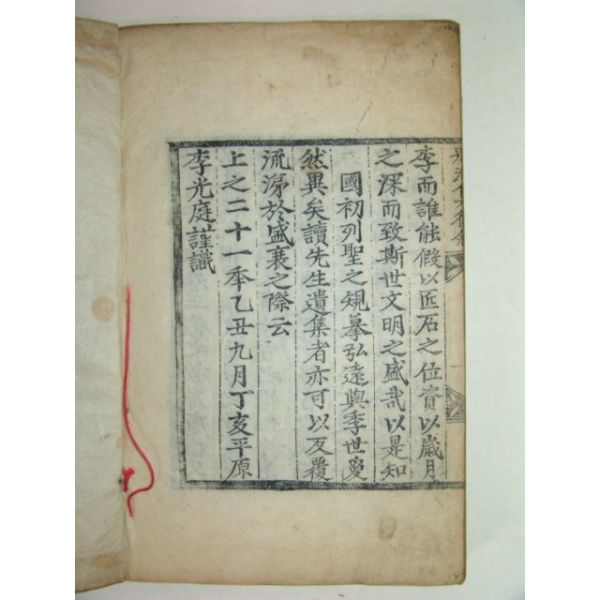 李而誰能假以匠石之位資以歲月
之深而致斯世文明之盛哉以是知
國初列聖之規摹弘遠與季世夐
然異矣讀先生遺集者亦可以反覆
流游於盛衰之際云
上之二十一年乙丑九月丁亥平原
李光庭謹識